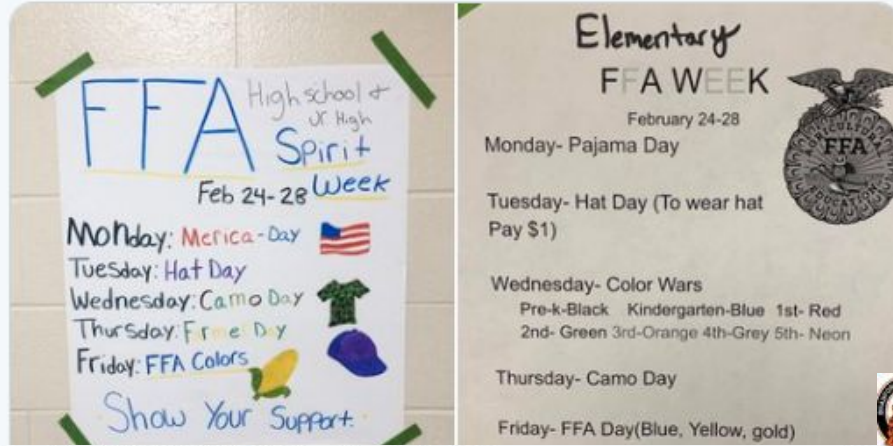 FFA
High school &
Jr High
Spirit
Week
Feb 24-28
Monday: Merica-Day
Tuesday: Hat Day
Wednesday: Camo Day
Thursday: Farmer Day
Friday: FFA Colors
Show Your Support.
Elementary
FFA WEEK
February 24-28
Monday- Pajama Day
Tuesday- Hat Day (To wear hat
Pay $1)
Wednesday- Color Wars
Pre-k-Black Kindergarten-Blue 1st- Red
2nd- Green 3rd-Orange 4th-Grey 5th- Neon
Thursday- Camo Day
Friday- FFA Day(Blue, Yellow, gold)
AGRICULTURAL
FFA
EDUCATION